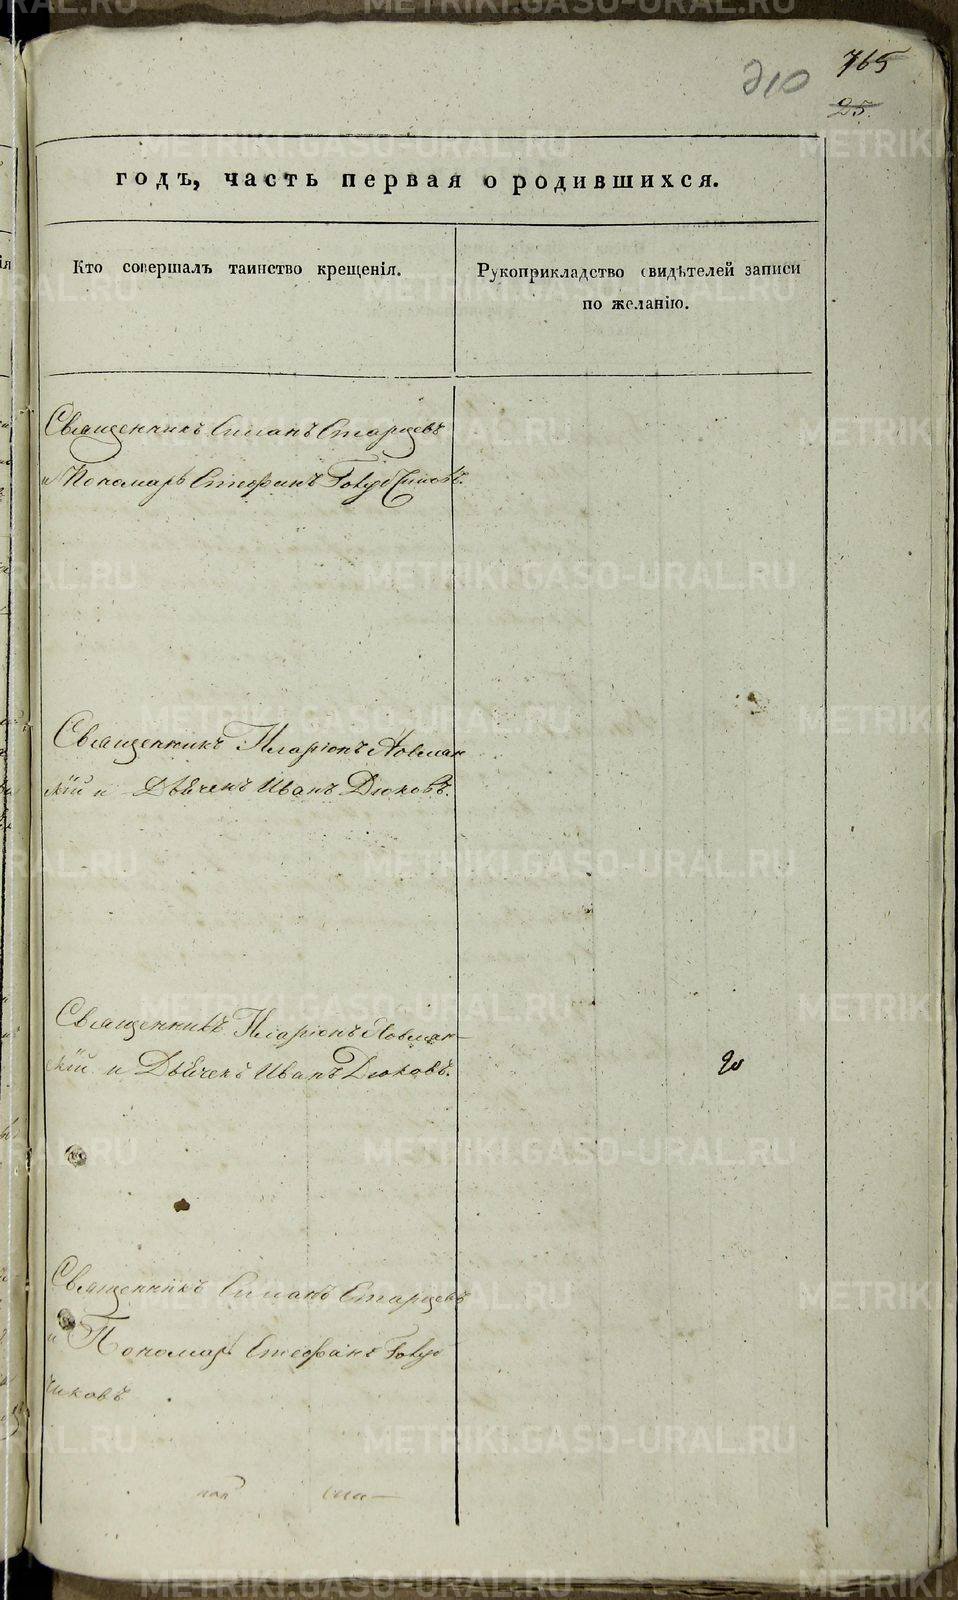 765
210
25.
годъ, часть первая о родившихся.
Кто совершалъ таинство крещенія.
Рукоприкладство свидѣтелей записи
по желанію.
Священникъ Симанъ Старцевъ
и Пономарь Стефанъ
Священникъ Иларіонъ
скій и Дьячекъ Иванъ Дюковъ.
Священникъ Иларіонъ
скій и Дьячекъ Иванъ Дюковъ.
20
Священникъ Симанъ Старцевъ
и Пономарь Стефанъ
чиковъ
METRIKI.GASO-URAL.RU